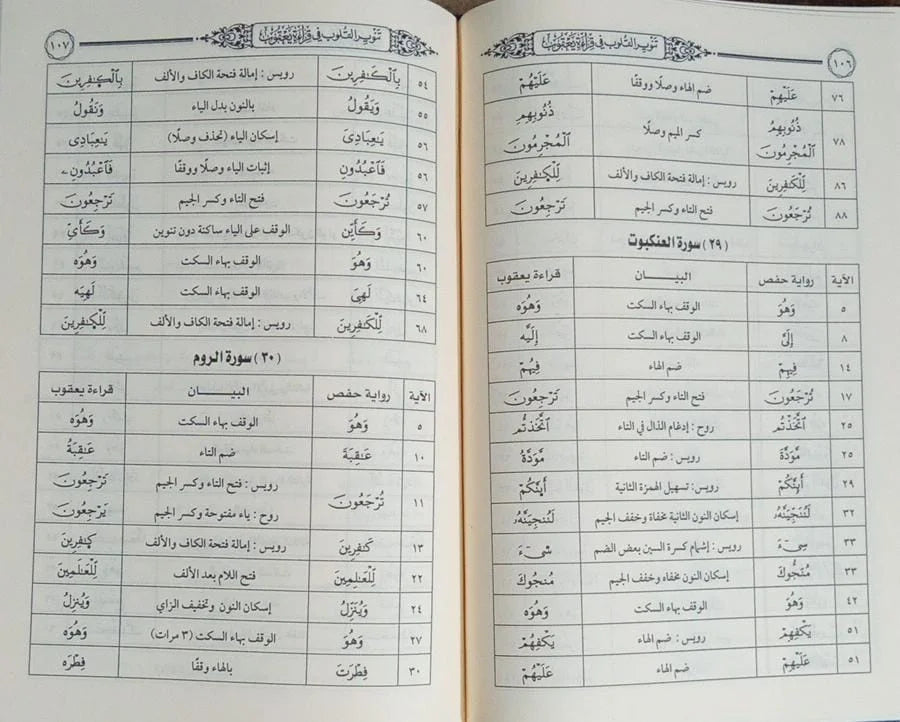 تنوير القلوب في قراءة يعقوب
١٠٦
٧٦ عَلَيْهِمْ ضم الهاء وصلًا ووقفًا عَلَيْهُمْ
٧٨ ذُنُوبِهِمُ الْمُجْرِمُونَ كسر الميم وصلًا ذُنُوبِهِمِ الْمُجْرِمُونَ
٨٦ لِّلْكَٰفِرِينَ رويس : إمالة فتحة الكاف والألف لِّلْكَٰفِرِينَ
٨٨ تُرْجَعُونَ فتح التاء وكسر الجيم تَرْجِعُونَ
(٢٩) سورة العنكبوت
الآية رواية حفص البيـــان قراءة يعقوب
٥ وَهُوَ الوقف بهاء السكت وَهُوَه
٨ إِلَىَّ الوقف بهاء السكت إِلَيَّه
١٤ فِيهِمْ ضم الهاء فِيهُمْ
١٧ تُرْجَعُونَ فتح التاء وكسر الجيم تَرْجِعُونَ
٢٥ اتَّخَذْتُم روح : إدغام الذال في التاء اتَّخَذتُّم
٢٥ مَّوَدَّةَ رويس : ضم التاء مَّوَدَّةُ
٢٩ أَئِنَّكُمْ رويس : تسهيل الهمزة الثانية
٣٢ لَنُنَجِّيَنَّهُۥ إسكان النون الثانية مخفاة وخفف الجيم لَنُنجِيَنَّهُۥ
٣٣ سِىٓءَ رويس : إشمام كسرة السين بعض الضم سِىٓءَ
٣٣ مُنَجُّوكَ إسكان النون مخفاه وخفف الجيم مُنجُوكَ
٤٢ وَهُوَ الوقف بهاء السكت وَهُوَه
٥١ يَكْفِهِمْ رويس : ضم الهاء يَكْفِهُمْ
٥١ عَلَيْهِمْ ضم الهاء عَلَيْهُمْ
تنوير القلوب في قراءة يعقوب
١٠٧
٥٤ بِالْكَٰفِرِينَ رويس : إمالة فتحة الكاف والألف بِالْكَٰفِرِينَ
٥٥ وَيَقُولُ بالنون بدل الياء وَنَقُولُ
٥٦ يَٰعِبَادِىَ إسكان الياء (تحذف وصلًا) يَٰعِبَادِى
٥٦ فَاعْبُدُونِ إثبات الياء وصلًا ووقفًا فَاعْبُدُونِۦ
٥٧ تُرْجَعُونَ فتح التاء وكسر الجيم تَرْجِعُونَ
٦٠ وَكَأَيِّن الوقف على الياء ساكنة دون تنوين وَكَأَيِّ
٦٠ وَهُوَ الوقف بهاء السكت وَهُوَه
٦٤ لَهِىَ الوقف بهاء السكت لَهِيَه
٦٨ لِّلْكَٰفِرِينَ رويس : إمالة فتحة الكاف والألف لِّلْكَٰفِرِينَ
(٣٠) سورة الروم
الآية رواية حفص البيـــان قراءة يعقوب
٥ وَهُوَ الوقف بهاء السكت وَهُوَه
١٠ عَٰقِبَةَ ضم التاء عَٰقِبَةُ
١١ تُرْجَعُونَ رويس : فتح التاء وكسر الجيم تَرْجِعُونَ
روح : ياء مفتوحة وكسر الجيم يَرْجِعُونَ
١٣ كَٰفِرِينَ رويس : إمالة فتحة الكاف والألف كَٰفِرِينَ
٢٢ لِّلْعَٰلِمِينَ فتح اللام بعد الألف لِّلْعَٰلَمِينَ
٢٤ وَيُنَزِّلُ إسكان النون وتخفيف الزاي وَيُنزِلُ
٢٧ وَهُوَ الوقف بهاء السكت (٣ مرات) وَهُوَه
٣٠ فِطْرَتَ بالهاء وقفًا فِطْرَه